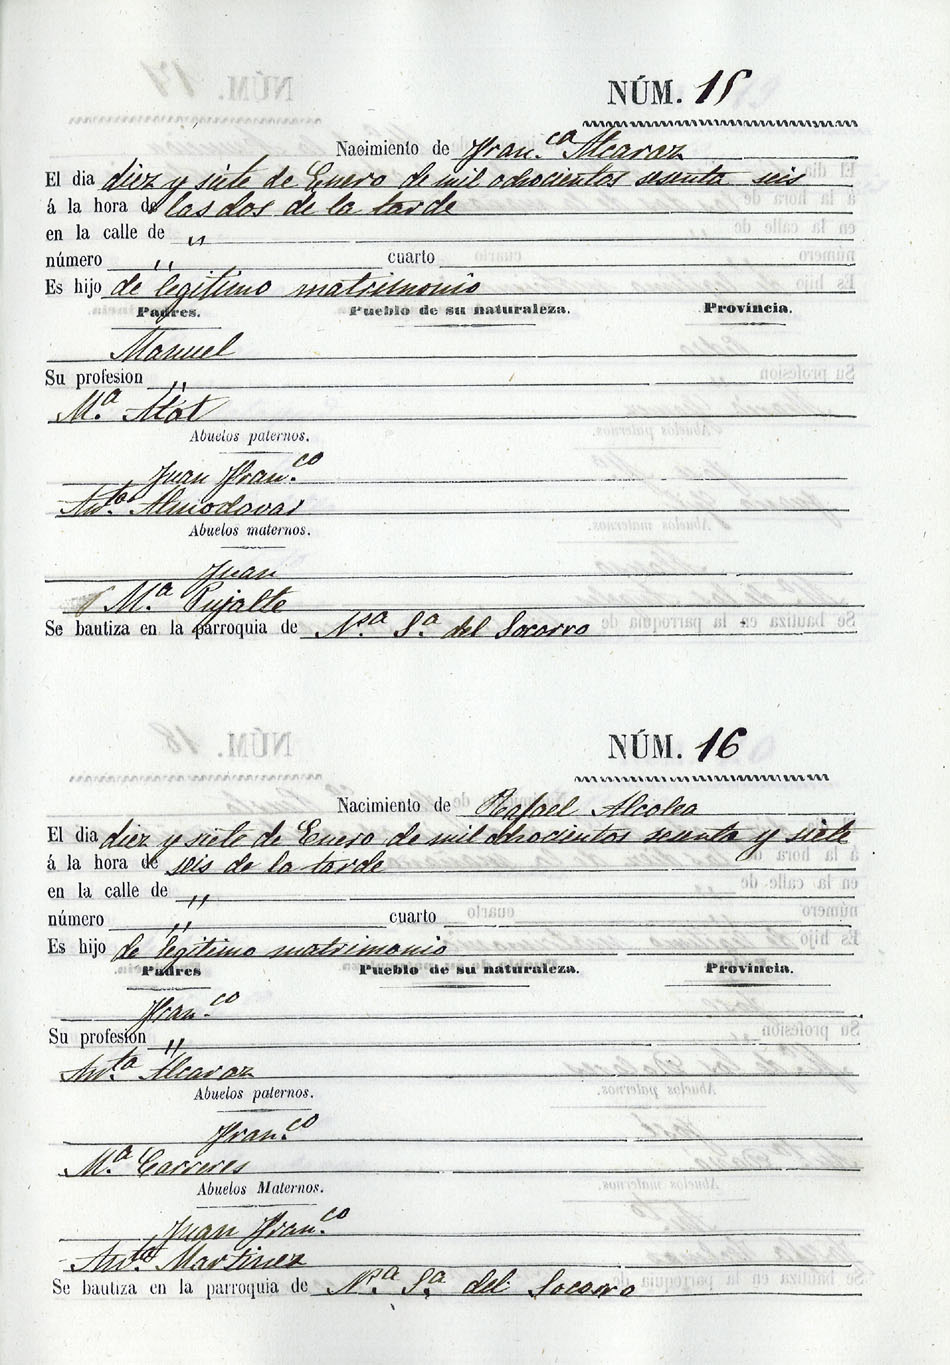 NÚM. 15
Nacimiento de Fran.ca Alcaraz
El dia diez y siete de Enero de mil ochocientos sesenta seis
á la hora de las dos de la tarde
en la calle de "
número " cuarto
Es hijo de legitimo matrimonio
Padres. Pueblo de su naturaleza. Provincia.
Manuel
Su profesion "
M.a Mot
Abuelos paternos.
Juan Fran.co
Ant.a Almodovar
Abuelos maternos.
Juan
M.a Pujalte
Se bautiza en la parroquia de N.sa S.a del Socorro
NÚM. 16
Nacimiento de Rafael Alcolea
El dia diez y siete de Enero de mil ochocientos sesenta y siete
á la hora de seis de la tarde
en la calle de "
número " cuarto
Es hijo de legitimo matrimonio
Padres Pueblo de su naturaleza. Provincia.
Fran.co
Su profesion "
Ant.a Alcaraz
Abuelos paternos.
Fran.co
M.a Carreres
Abuelos Maternos.
Juan Fran.co
Ant.a Martinez
Se bautiza en la parroquia de N.ra S.a del Socorro